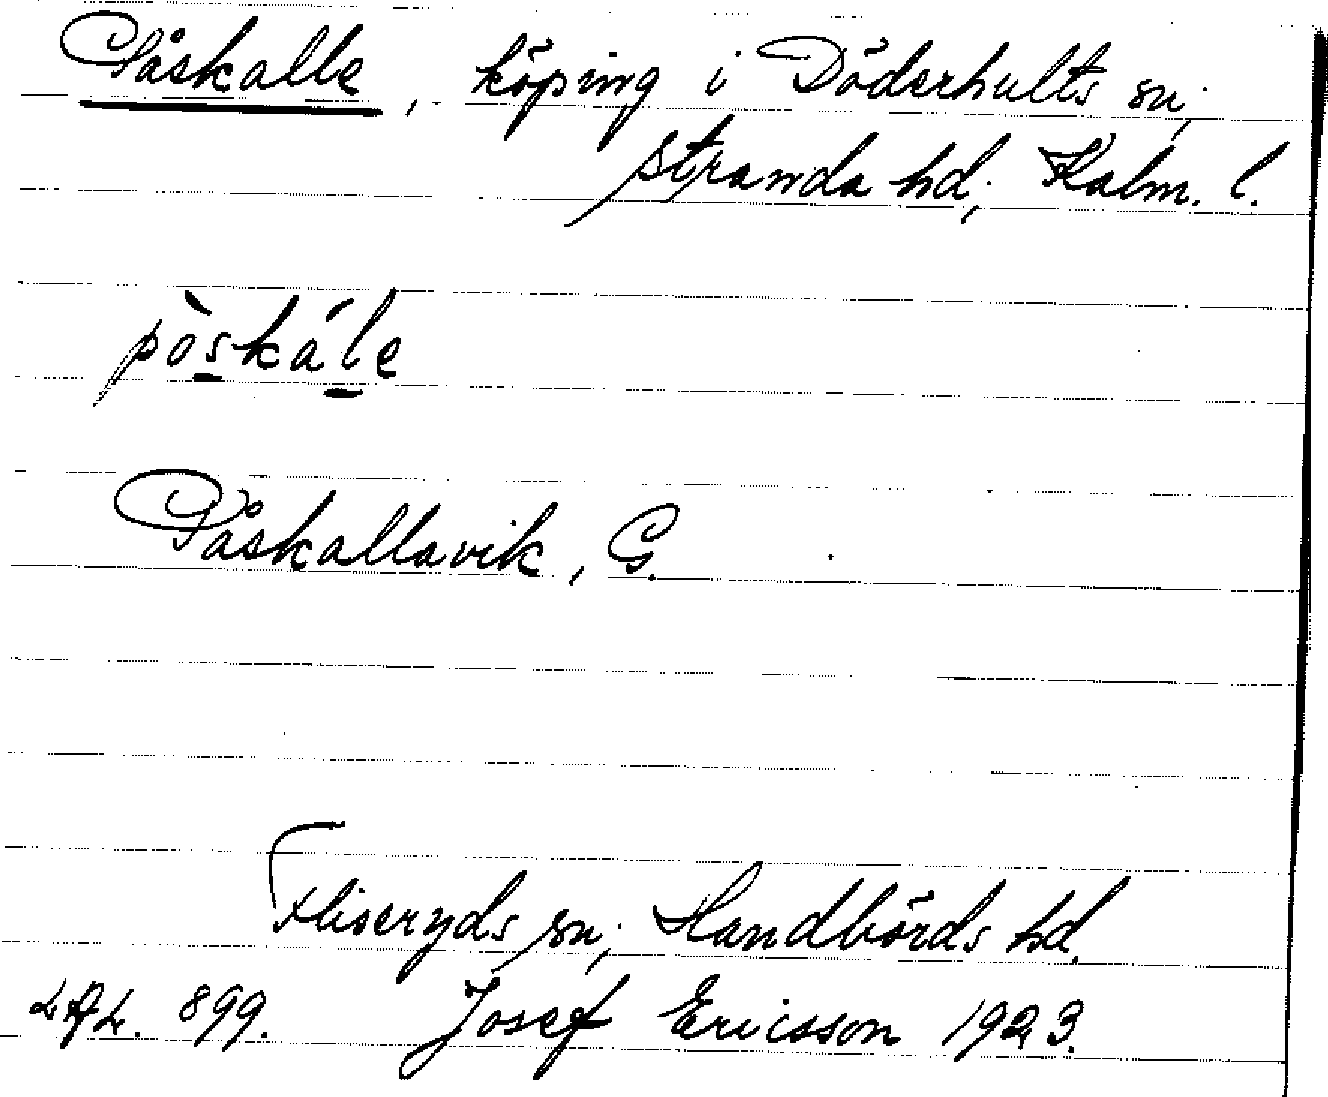 Påskalle, köping i Döderhults sn;
Stranda hd; Kalm. l.
pòskále
Påskallavik, G.
Fliseryds sn; Handbörds hd.
899. Josef Ericsson 1923.